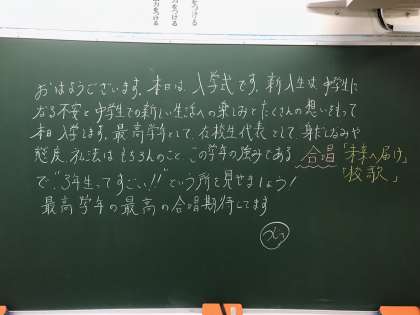 力をつける
力をつける
おはようございます。本日は、入学式です。新入生は、中学生に
なる不安と中学生での新しい生活への楽しみとたくさんの想いをもって
本日入学します。最高学年として、在校生代表として、身だしなみや
態度、礼法はもちろんのこと、この学年の強みである 合唱「未来へ届け」
「校歌」
で"3年生ってすごい!!"という所を見せましょう!
最高学年の最高の合唱期待してます